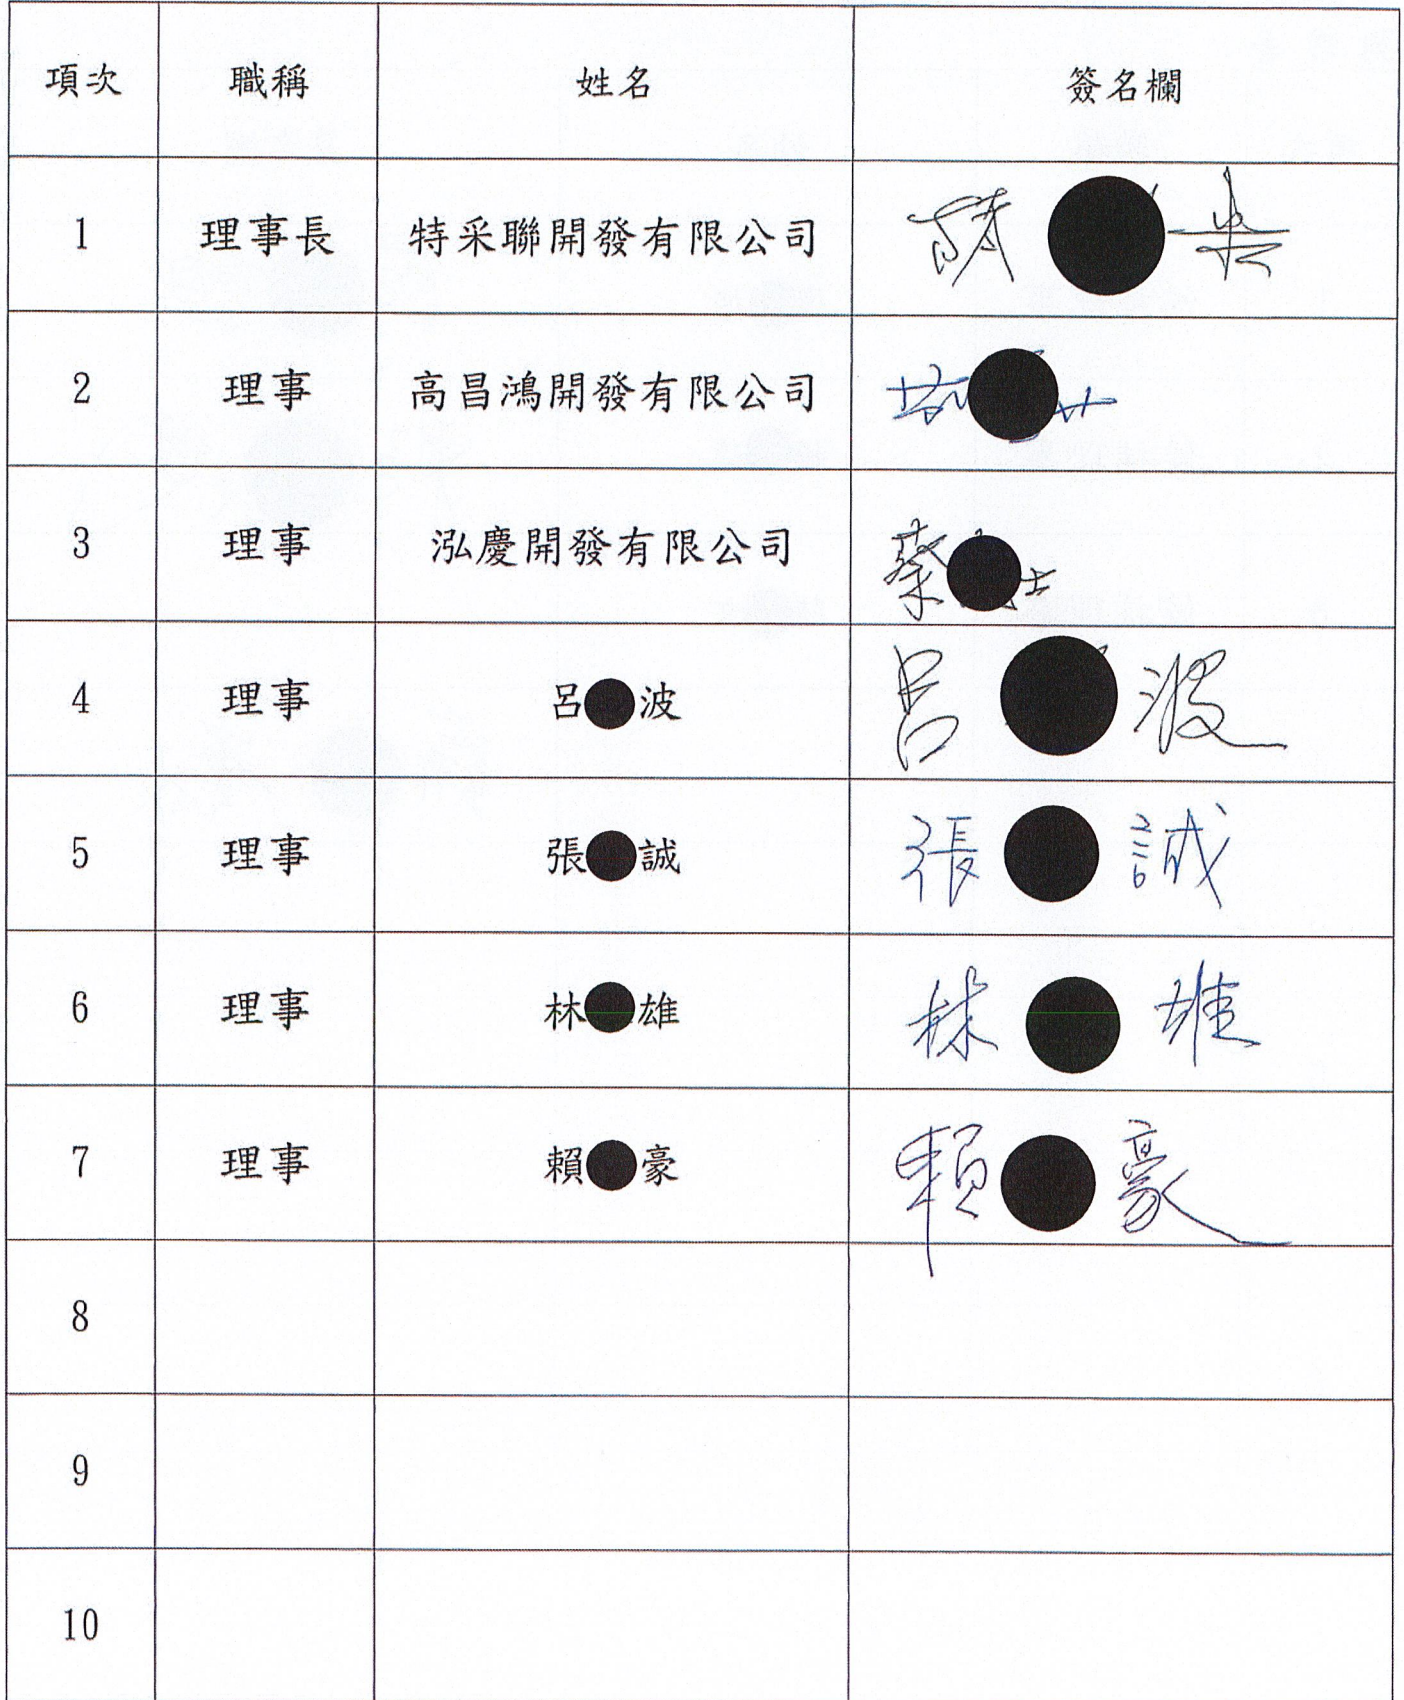 項次 職稱 姓名 簽名欄
1 理事長 特采聯開發有限公司
2 理事 高昌鴻開發有限公司
3 理事 泓慶開發有限公司 蔡 士
4 理事 呂 波 呂 波
5 理事 張 誠 張 誠
6 理事 林 雄 林 雄
7 理事 賴 豪 賴 豪
8
9
10